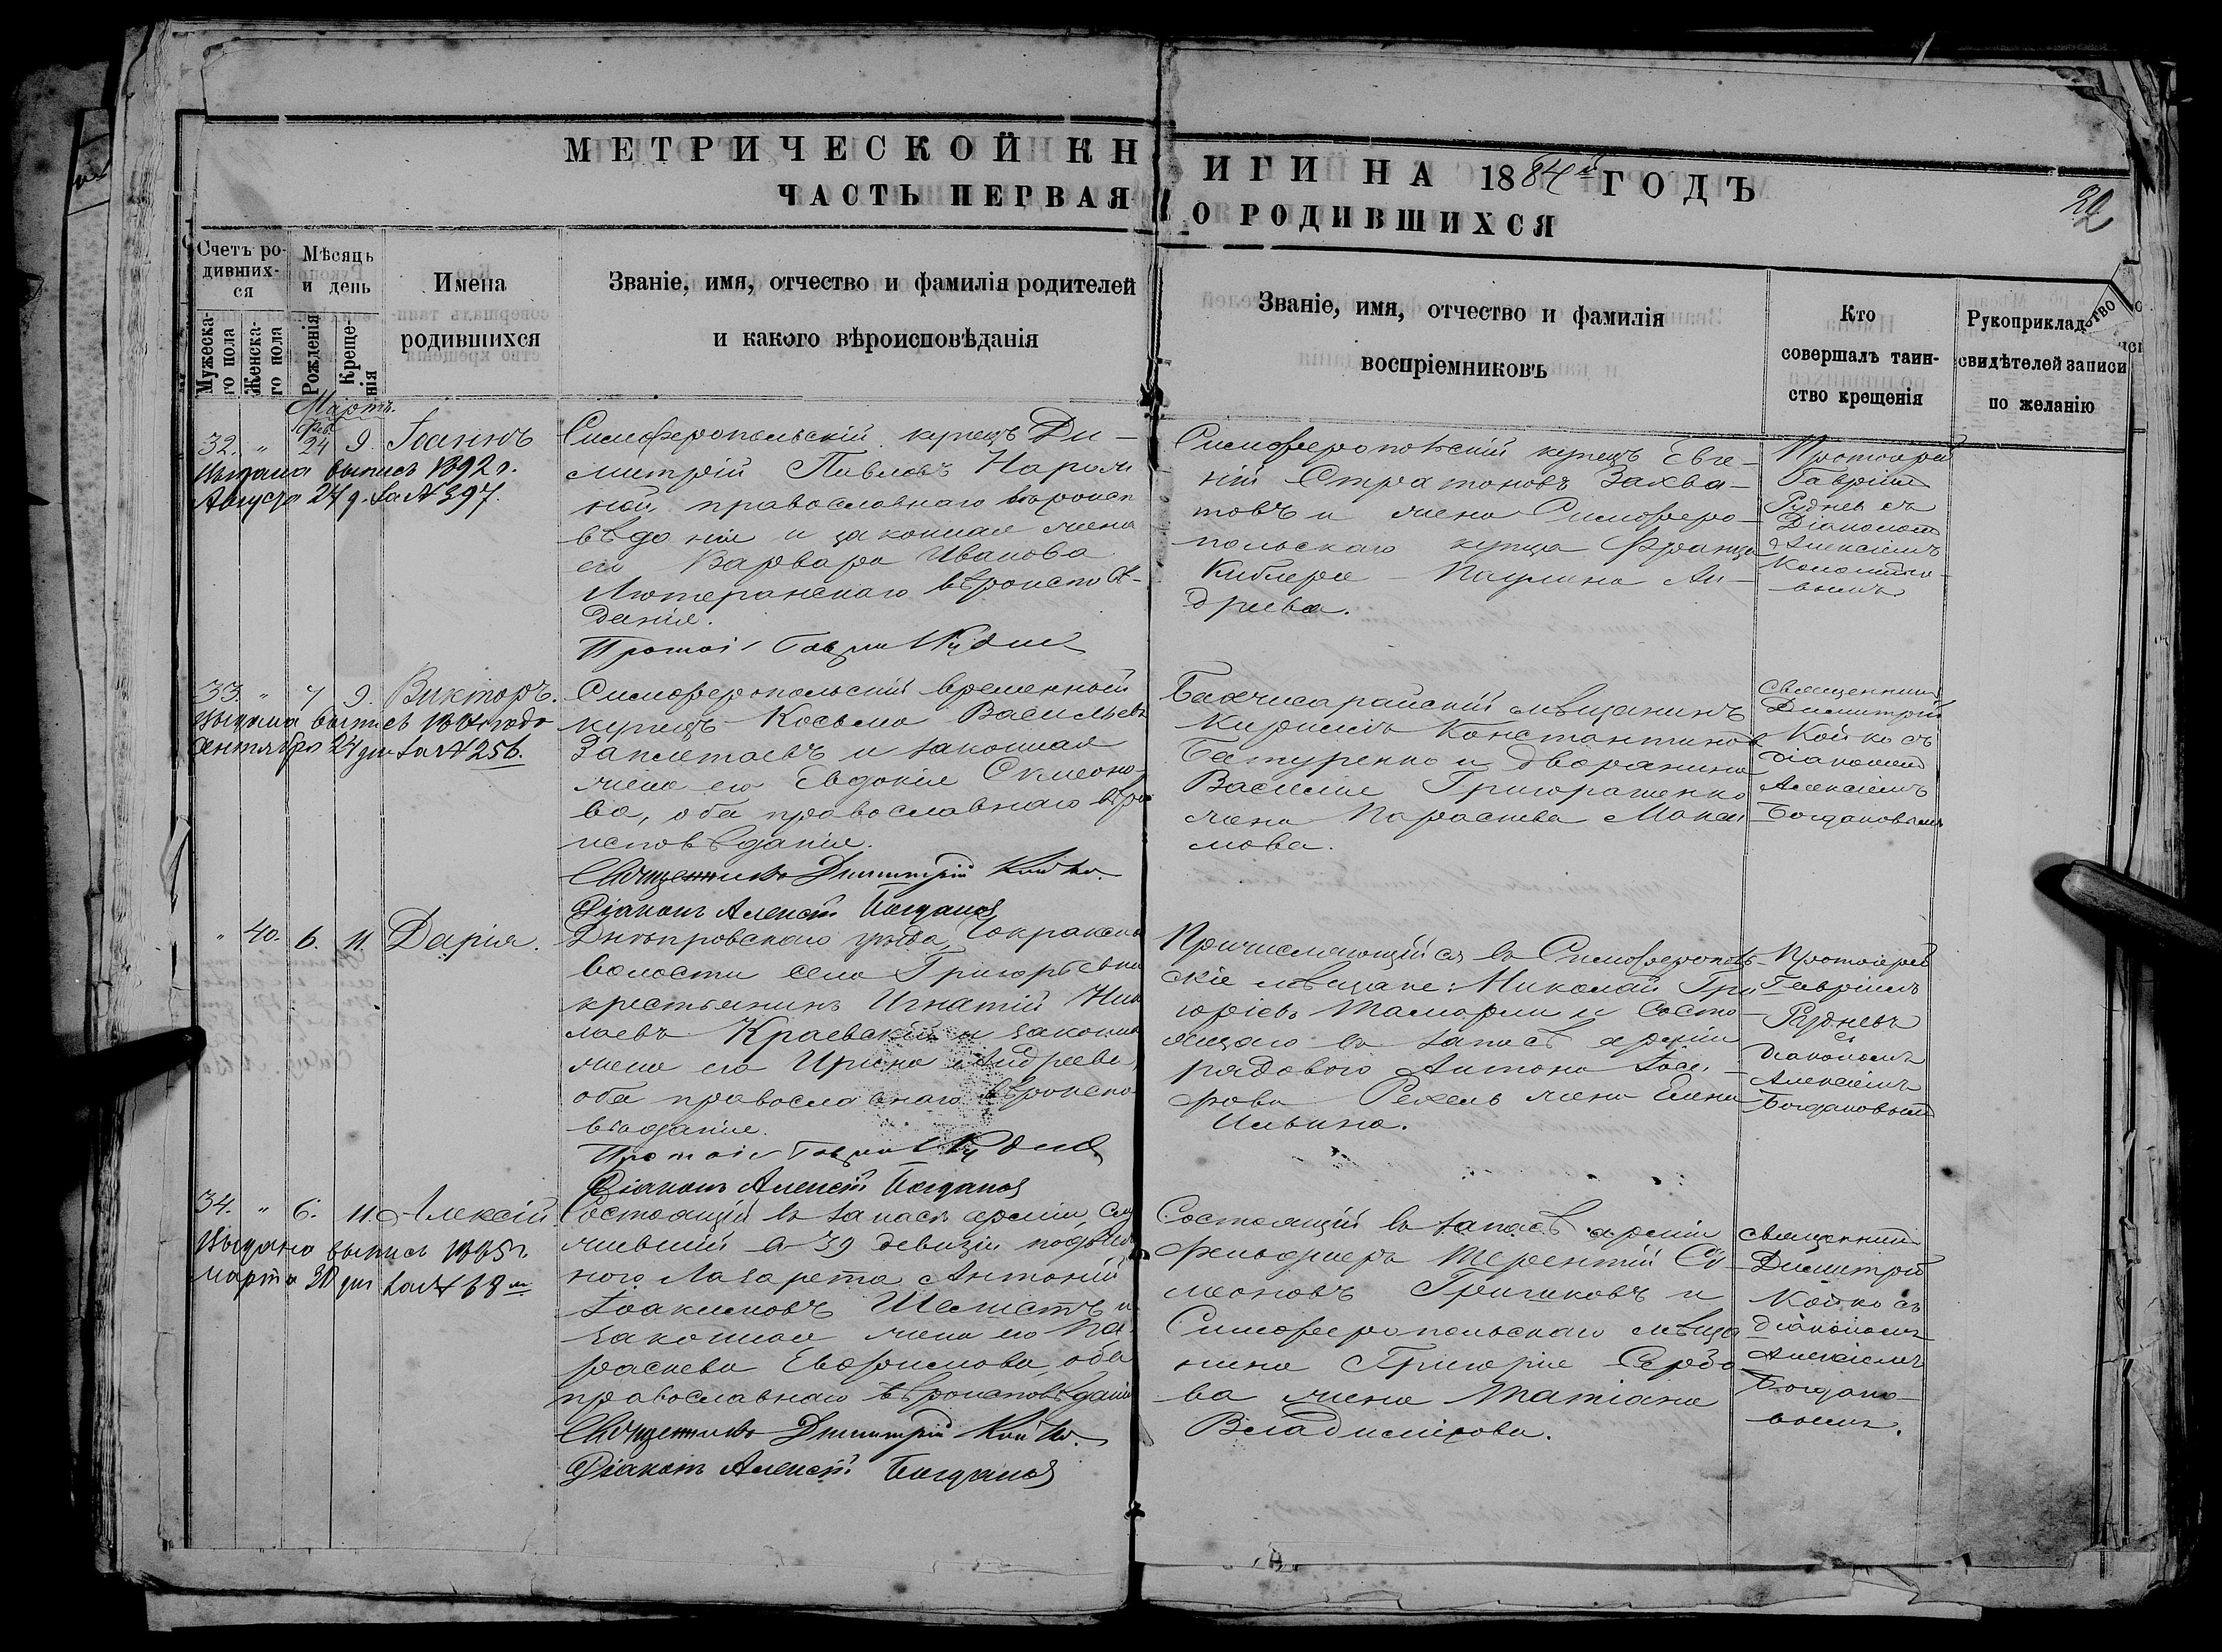 МЕТРИЧЕСКОЙ КНИГИ НА 1884й ГОДЪ
ЧАСТЬ ПЕРВАЯ О РОДИВШИХСЯ
Счетъ ро-
дивших-
ся
Мужеска-
го пола
Женска-
го пола
Мѣсяць
и день
Рожденія
Креще-
нія
Имена
родившихся
Званіе, имя, отчество и фамилія родителей
и какого вѣроисповѣданія
Званіе, имя, отчество и фамилія
воспріемниковъ
Кто
совершалъ таин-
ство крещенія
Рукоприкладство
свидѣтелей записи
по желанію
Мартъ.
32. " Фев. 24 9. Іоаннъ
Выдана выпись 1892 г.
Августа 24 д. за № 397.
Симферопольскій купецъ Ди-
митрій Павловъ
православнаго вѣроисп
вѣданія и законная жена
его Варвара Иванова
Лютеранскаго вѣроисповѣ-
данія.
Протоі Гавріи Рудне
Симферопольскій купецъ Евге-
ній Стратоновъ Захва-
товъ и жена Симферо-
польскаго купца Франца
Киблера Паулина Ан-
дреева.
Протоіерей
Гавріилъ
Рудневъ съ
Діакономъ
Алексіемъ
33. " 7 9. Викторъ.
Выдана выпись 1884 года
Сентября 24 дня за № 256.
Симферопольскій временный
купецъ Косьма Васильевъ
Заплетаевъ и законная
жена его Евдокія Симеоно-
ва, оба православнаго вѣро
исповѣданія.
Священникъ Димитрій Койко.
Діаконъ Алексій Богданов
Бахчисарайскій мѣщанинъ
Кириллъ Константинов
Батуренко и дворянина
Василія Григорашенко
жена Параскева Макси
мова.
Священникъ
Димитрій
Койко съ
діакономъ
Алексіемъ
Богдановымъ
" 40. 6. 11. Дарія.
Днѣпровскаго уѣзда,
волости села Григорьевки
крестьянинъ Игнатій Ник
лаевъ Краевскій и законна
жена его Ирина Андреева,
оба православнаго вѣроиспо
вѣданія.
Протоі Гавріи Рудне
Діаконъ Алексій Богданов
Причисляющійся въ Симферополь-
скіе мѣщане: Николай Гри
горіевъ и состо-
ящаго въ запасѣ арміи
рядового Антона Іоси-
фова жена Елена
Ильина.
Протоіерей
Гавріилъ
Рудневъ
съ
діакономъ
Алексіемъ
Богдановымъ
34. " 6. 11. Алексій
Выдана выпись 1885 г.
Марта 28 дня за № 68 м
Состоящій въ запасѣ арміи, слу
жившій въ 39 девизіи подвиж
ного Лазарета Антоній
Іоакимовъ Шелестъ и
законная жена его Па-
раскева Евфимова, оба
православнаго вѣроисповѣданія
Священникъ Димитрій Койко.
Діаконъ Алексій Богданов
Состоящій въ запасѣ арміи
фельдшеръ Терентій Си-
меоновъ Гришковъ и
Симферопольскаго мѣща
нина Григорія Сердо
ва жена Татіана
Владимірова.
Священникъ
Димитрій
Койко съ
діакономъ
Алексіемъ
Богдано-
вымъ.